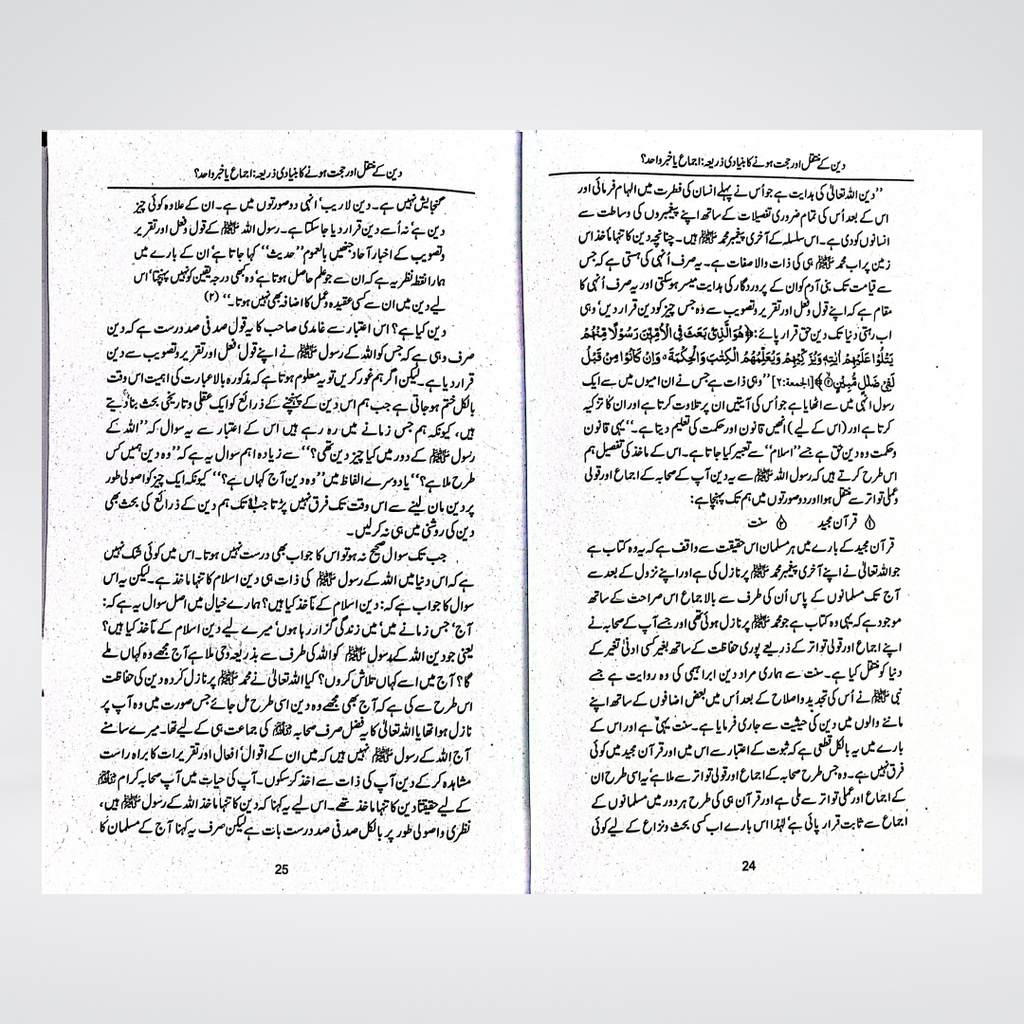 دین کے منتقل اور حجت ہونے کا بنیادی ذریعہ: اجماع یا خبر واحد؟
’’دین اللہ تعالیٰ کی ہدایت ہے جو اُس نے پہلے انسان کی فطرت میں الہام فرمائی اور
اس کے بعد اُس کی تمام ضروری تفصیلات کے ساتھ اپنے پیغمبروں کی وساطت سے
انسانوں کو دی ہے۔ اس سلسلہ کے آخری پیغمبر محمد ﷺ ہیں۔ چنانچہ دین کا تنہا ماخذ اس
زمین پر اب محمد ﷺ ہی کی ذات والا صفات ہے۔ یہ صرف اُنہی کی ہستی ہے کہ جس
سے قیامت تک بنی آدم کو ان کے پروردگار کی ہدایت میسر ہو سکتی اور یہ صرف اُنہی کا
مقام ہے کہ اپنے قول و فعل اور تقریر و تصویب سے وہ جس چیز کو دین قرار دیں‘ وہی
اب رہتی دنیا تک دین حق قرار پائے: ﴿هُوَ الَّذِیْ بَعَثَ فِی الْاُمِّیّٖنَ رَسُوْلًا مِّنْهُمْ
یَتْلُوْا عَلَیْهِمْ اٰیٰتِهٖ وَیُزَكِّیْهِمْ وَیُعَلِّمُهُمُ الْكِتٰبَ وَالْحِكْمَةَ ۗ وَاِنْ كَانُوْا مِنْ قَبْلُ
لَفِیْ ضَلٰلٍ مُّبِیْنٍ﴾ [الجمعة:۲] ’’وہی ذات ہے جس نے ان امیوں میں سے ایک
رسول انہی میں سے اٹھایا ہے جو اُس کی آیتیں ان پر تلاوت کرتا ہے اور ان کا تزکیہ
کرتا ہے اور (اس کے لیے) انھیں قانون اور حکمت کی تعلیم دیتا ہے۔‘‘ یہی قانون
و حکمت وہ دین حق ہے جسے ’’اسلام‘‘ سے تعبیر کیا جاتا ہے۔ اس کے ماخذ کی تفصیل ہم
اس طرح کرتے ہیں کہ رسول اللہ ﷺ سے یہ دین آپ کے صحابہ کے اجماع اور قولی
و عملی تواتر سے منتقل ہوا اور دو صورتوں میں ہم تک پہنچا ہے:
① قرآن مجید ② سنت
قرآن مجید کے بارے میں ہر مسلمان اس حقیقت سے واقف ہے کہ یہ وہ کتاب ہے
جو اللہ تعالیٰ نے اپنے آخری پیغمبر محمد ﷺ پر نازل کی ہے اور اپنے نزول کے بعد سے
آج تک مسلمانوں کے پاس اُن کی طرف سے بالاجماع اس صراحت کے ساتھ
موجود ہے کہ یہی وہ کتاب ہے جو محمد ﷺ پر نازل ہوئی تھی اور جسے آپ کے صحابہ نے
اپنے اجماع اور قولی تواتر کے ذریعے پوری حفاظت کے ساتھ بغیر کسی ادنیٰ تغیر کے
دنیا کو منتقل کیا ہے۔ سنت سے ہماری مراد دین ابراہیمی کی وہ روایت ہے جسے
نبی ﷺ نے اُس کی تجدید و اصلاح کے بعد اُس میں بعض اضافوں کے ساتھ اپنے
ماننے والوں میں دین کی حیثیت سے جاری فرمایا ہے۔ سنت یہی ہے اور اس کے
بارے میں یہ بالکل قطعی ہے کہ ثبوت کے اعتبار سے اس میں اور قرآن مجید میں کوئی
فرق نہیں ہے۔ وہ جس طرح صحابہ کے اجماع اور قولی تواتر سے ملا ہے‘ یہ اسی طرح ان
کے اجماع اور عملی تواتر سے ملی ہے اور قرآن ہی کی طرح ہر دور میں مسلمانوں کے
اجماع سے ثابت قرار پائی ہے‘ لہٰذا اس بارے اب کسی بحث و نزاع کے لیے کوئی
24
دین کے منتقل اور حجت ہونے کا بنیادی ذریعہ: اجماع یا خبر واحد؟
گنجایش نہیں ہے۔ دین لاریب‘ انہی دو صورتوں میں ہے۔ ان کے علاوہ کوئی چیز
دین ہے‘ نہ اُسے دین قرار دیا جا سکتا ہے۔ رسول اللہ ﷺ کے قول و فعل اور تقریر
و تصویب کے اخبار آحاد جنھیں بالعموم ’’حدیث‘‘ کہا جاتا ہے‘ ان کے بارے میں
ہمارا نقطہ نظر یہ ہے کہ ان سے جو علم حاصل ہوتا ہے‘ وہ کبھی درجہ یقین کو نہیں پہنچتا‘ اس
لیے دین میں ان سے کسی عقیدہ و عمل کا اضافہ بھی نہیں ہوتا۔‘‘ (۲)
دین کیا ہے؟ اس اعتبار سے غامدی صاحب کا یہ قول صد فی صد درست ہے کہ دین
صرف وہی ہے کہ جس کو اللہ کے رسول ﷺ نے اپنے قول‘ فعل اور تقریر و تصویب سے دین
قرار دیا ہے۔ لیکن اگر ہم غور کریں تو یہ معلوم ہوتا ہے کہ مذکورہ بالا عبارت کی اہمیت اس وقت
بالکل ختم ہو جاتی ہے جب ہم اس دین کے پہنچنے کے ذرائع کو ایک عقلی و تاریخی بحث بنا دیتے
ہیں‘ کیونکہ ہم جس زمانے میں رہ رہے ہیں اس کے اعتبار سے یہ سوال کہ ’’اللہ کے
رسول ﷺ کے دور میں کیا چیز دین تھی؟‘‘ سے زیادہ اہم سوال یہ ہے کہ ’’وہ دین ہمیں کس
طرح ملا ہے؟‘‘ یا دوسرے الفاظ میں ’’وہ دین آج کہاں ہے؟‘‘ کیونکہ ایک چیز کو اصولی طور
پر دین مان لینے سے اس وقت تک فرق نہیں پڑتا جب تک ہم دین کے ذرائع کی بحث بھی
دین کی روشنی میں ہی نہ کر لیں۔
جب تک سوال صحیح نہ ہو تو اس کا جواب بھی درست نہیں ہوتا۔ اس میں کوئی شک نہیں
ہے کہ اس دنیا میں اللہ کے رسول ﷺ کی ذات ہی دین اسلام کا تنہا ماخذ ہے۔ لیکن یہ اس
سوال کا جواب ہے کہ: دین اسلام کے مآخذ کیا ہیں؟ ہمارے خیال میں اصل سوال یہ ہے کہ:
آج‘ جس زمانے میں‘ میں زندگی گزار رہا ہوں‘ میرے لیے دین اسلام کے مآخذ کیا ہیں؟
یعنی جو دین اللہ کے رسول ﷺ کو اللہ کی طرف سے بذریعہ وحی ملا ہے آج مجھے وہ کہاں ملے
گا؟ آج میں اسے کہاں تلاش کروں؟ کیا اللہ تعالیٰ نے محمد ﷺ پر نازل کردہ دین کی حفاظت
اس طرح سے کی ہے کہ آج بھی مجھے وہ دین اسی طرح مل جائے جس صورت میں وہ آپ پر
نازل ہوا تھا یا اللہ تعالیٰ کا یہ فضل صرف صحابہ کی جماعت ہی کے لیے تھا۔ میرے سامنے
آج اللہ کے رسول ﷺ نہیں ہیں کہ میں ان کے اقوال‘ افعال اور تقریرات کا براہ راست
مشاہدہ کر کے دین آپ کی ذات سے اخذ کر سکوں۔ آپ کی حیات میں آپ صحابہ کرام
کے لیے حقیقتاً دین کا تنہا ماخذ تھے۔ اس لیے یہ کہنا کہ دین کا تنہا ماخذ اللہ کے رسول ﷺ ہیں‘
نظری و اصولی طور پر بالکل صد فی صد درست بات ہے لیکن صرف یہ کہنا آج کے مسلمان کا
25